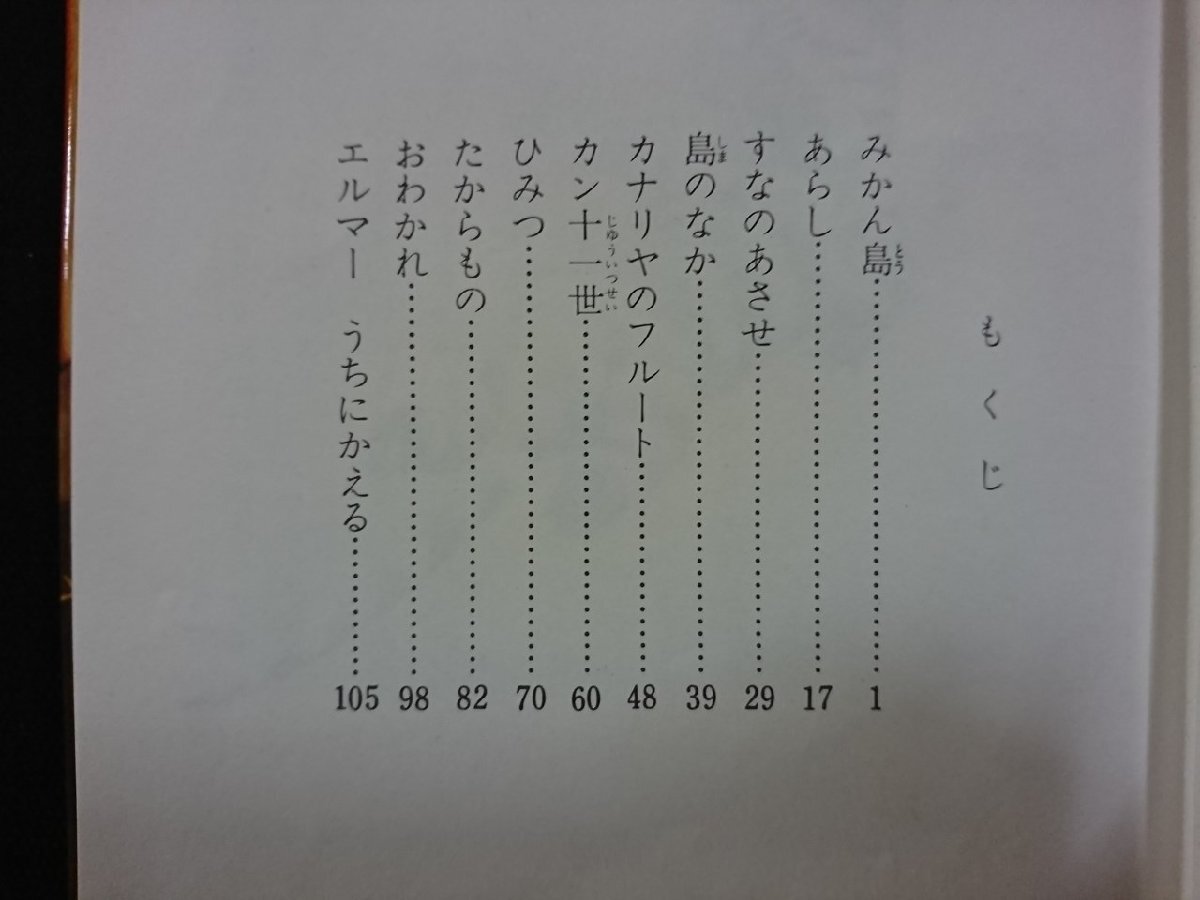 もくじ
みかん島……………………1
あらし……………………17
すなのあさせ……………………29
島のなか……………………39
カナリヤのフルート……………………48
カン十一世……………………60
ひみつ……………………70
たからもの……………………82
おわかれ……………………98
エルマー　うちにかえる……………………105